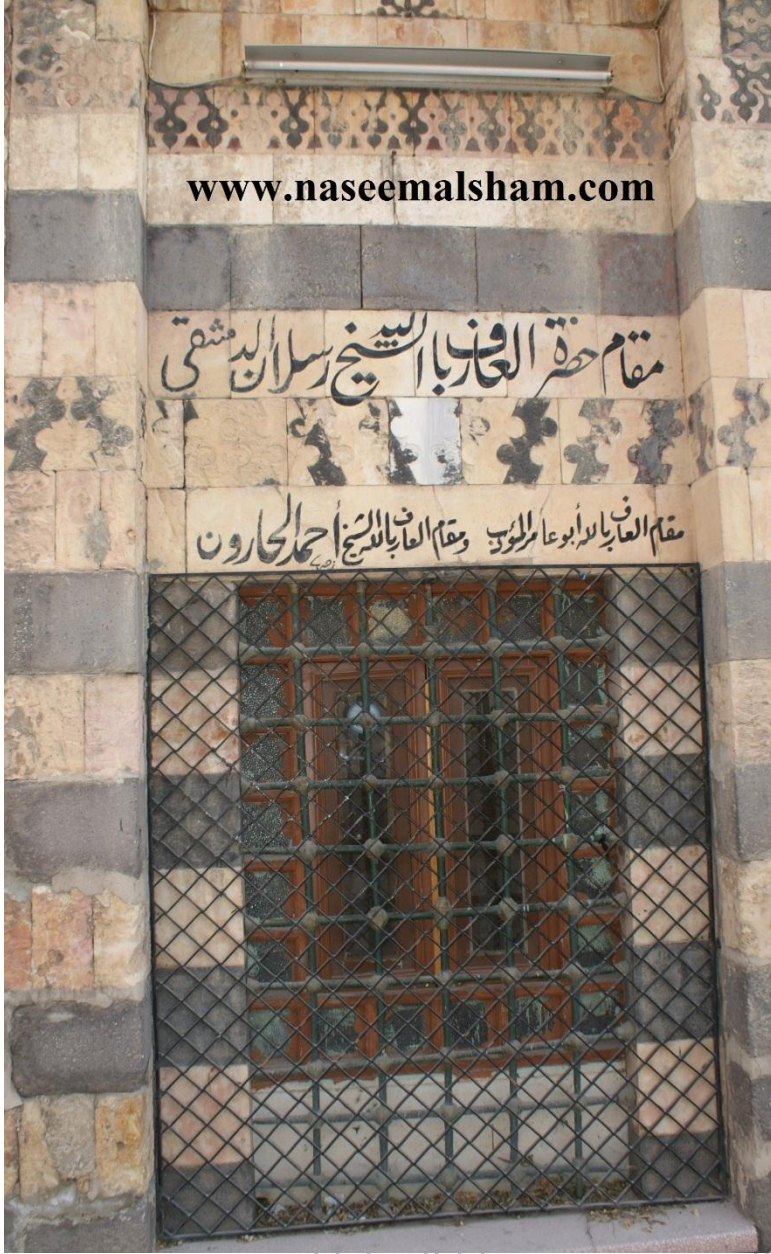 www.naseemalsham.com
مقام حضرة العارف بالله الشيخ رسلان الدمشقي
مقام العارف بالله أبو عامر المؤدب ومقام العارف بالله الشيخ أحمد الحارون